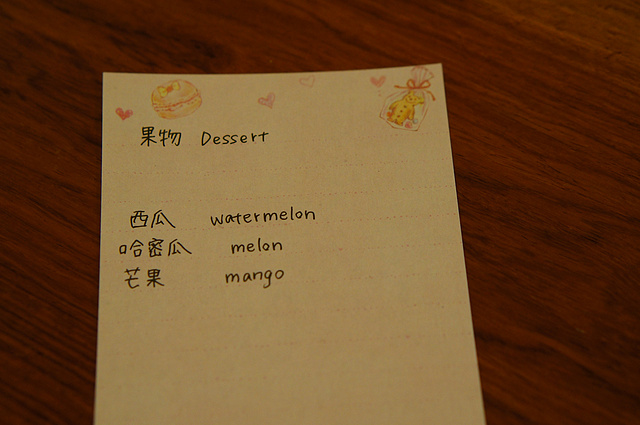 果物 Dessert
西瓜 watermelon
哈密瓜 melon
芒果 mango